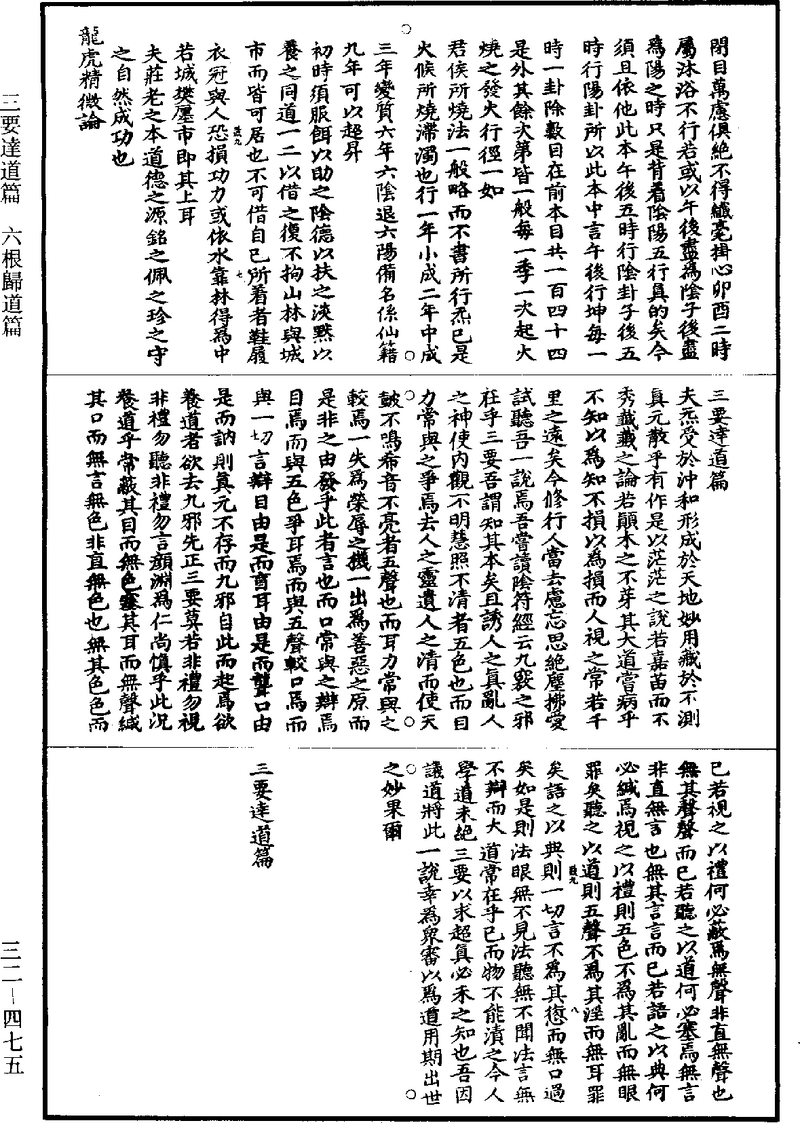 閉目萬慮俱絕不得纖毫掛心卯酉二時
屬沐浴不行若或以午後盡為陰子後盡
為陽之時只是背看陰陽五行真的矣今
須且依他此本午後五時行陰卦子後五
時行陽卦所以此本中言午後行坤每一
時一卦除數目在前本目共一百四十四
是外其餘次第皆一般每一季一次起火
燒之發火行徑一如
君侯所燒法一般略而不書所行炁已是
火候所燒滯濁也行一年小成二年中成
三年變質六年六陰退六陽備名係仙籍
九年可以超昇
初時須服餌以助之陰德以扶之淡默以
養之同道一二以借之復不拘山林與城
市而皆可居也不可借自己所着者鞋履
衣冠與人恐損功力或依水靠林得為中
若城樊屋市即其上耳
夫莊老之本道德之源銘之佩之珍之守
之自然成功也
龍虎精微論
三要達道篇
夫炁受於沖和形成於天地妙用藏於不測
真元散乎有作是以茫茫之說若嘉苗而不
秀蘵蘵之論若顛木之不芽其大道嘗病乎
不知以為知不損以為損而人視之常若千
里之遠矣今修行人當去慮忘思絕塵拂愛
試聽吾一說焉吾嘗讀陰符經云九竅之邪
在乎三要吾謂知其本矣且誘人之真亂人
之神使內觀不明慧照不清者五色也而目
力常與之爭焉去人之靈遺人之清而使天
皷不鳴希音不亮者五聲也而耳力常與之
較焉一失為榮辱之機一出為善惡之原而
是非之由發乎此者言也而口常與之辯焉
目焉而與五色爭耳焉而與五聲較口焉而
與一切言辯目由是而盲耳由是而聾口由
是而訥則真元不存而九邪自此而起為欲
養道者欲去九邪先正三要莫若非禮勿視
非禮勿聽非禮勿言顏淵為仁尚慎乎此況
養道乎常蔽其目而無色塞其耳而無聲緘
其口而無言無色非直無色也無其色色而
已若視之以禮何必蔽焉無聲非直無聲也
無其聲聲而已若聽之以道何必塞焉無言
非直無言也無其言言而已若語之以典何
必緘焉視之以禮則五色不為其亂而無眼
罪矣聽之以道則五聲不為其淫而無耳罪
矣語之以典則一切言不為其愆而無口過
矣如是則法眼無不見法聽無不聞法言無
不辯而大道常在乎己而物不能漬之今人
學道未絕三要以求超真必未之知也吾因
議道將此一說幸為眾審以為道用期出世
之妙果爾
三要達道篇
三要達道篇 六根歸道篇
三二－四七五